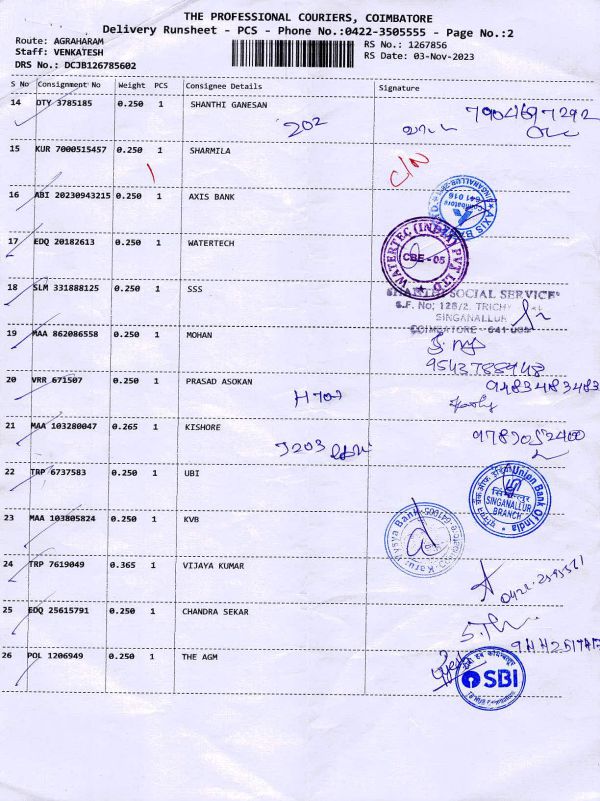 THE PROFESSIONAL COURIERS, COIMBATORE
Delivery Runsheet - PCS - Phone No.:0422-3505555 - Page No.:2
Route: AGRAHARAM
Staff: VENKATESH
DRS No.: DCJB126785602
RS No.: 1267856
RS Date: 03-Nov-2023
S No Consignment No Weight PCS Consignee Details Signature
14 DTY 3785185 0.250 1 SHANTHI GANESAN
202
7904697292
15 KUR 7000515457 0.250 1 SHARMILA
C/N
16 ABI 20230943215 0.250 1 AXIS BANK
641 016
17 EDQ 20182613 0.250 1 WATERTECH
WATERTEC (INDIA) PVT LTD
CBE - 05
18 SLM 331888125 0.250 1 SSS
SHANTHI SOCIAL SERVICE
S.F. No: 128/2, TRICHY
SINGANALLUR
COIMBATORE - 641 005
19 MAA 862086558 0.250 1 MOHAN
20 VRR 671507 0.250 1 PRASAD ASOKAN
9483483483
21 MAA 103280047 0.265 1 KISHORE
J203
22 TRP 6737583 0.250 1 UBI
Union Bank Of India
SINGANALLUR
BRANCH
23 MAA 103805824 0.250 1 KVB
Karur Vysya Bank
24 TRP 7619049 0.365 1 VIJAYA KUMAR
25 EDQ 25615791 0.250 1 CHANDRA SEKAR
26 POL 1206949 0.250 1 THE AGM
SBI